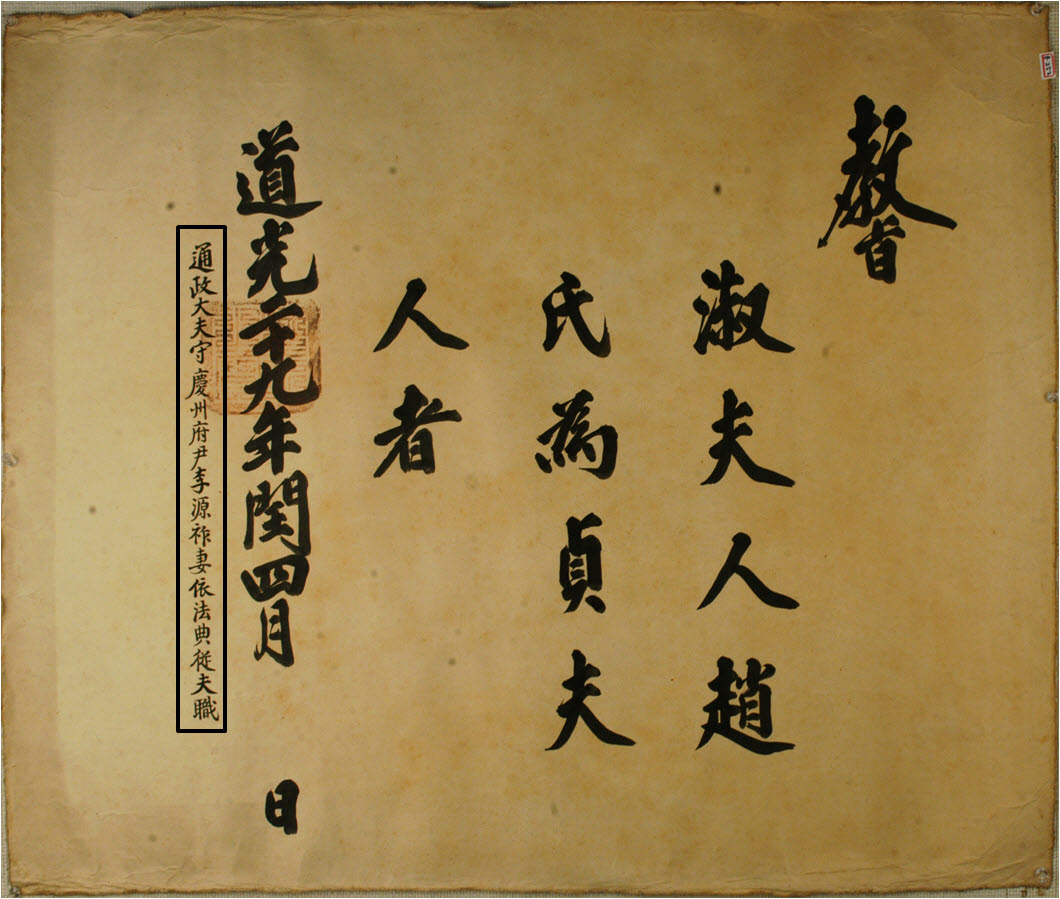 敎旨
淑夫人趙
氏爲貞夫
人者
道光二十九年閏四月　日
通政大夫守慶州府尹李源祚妻依法典從夫職